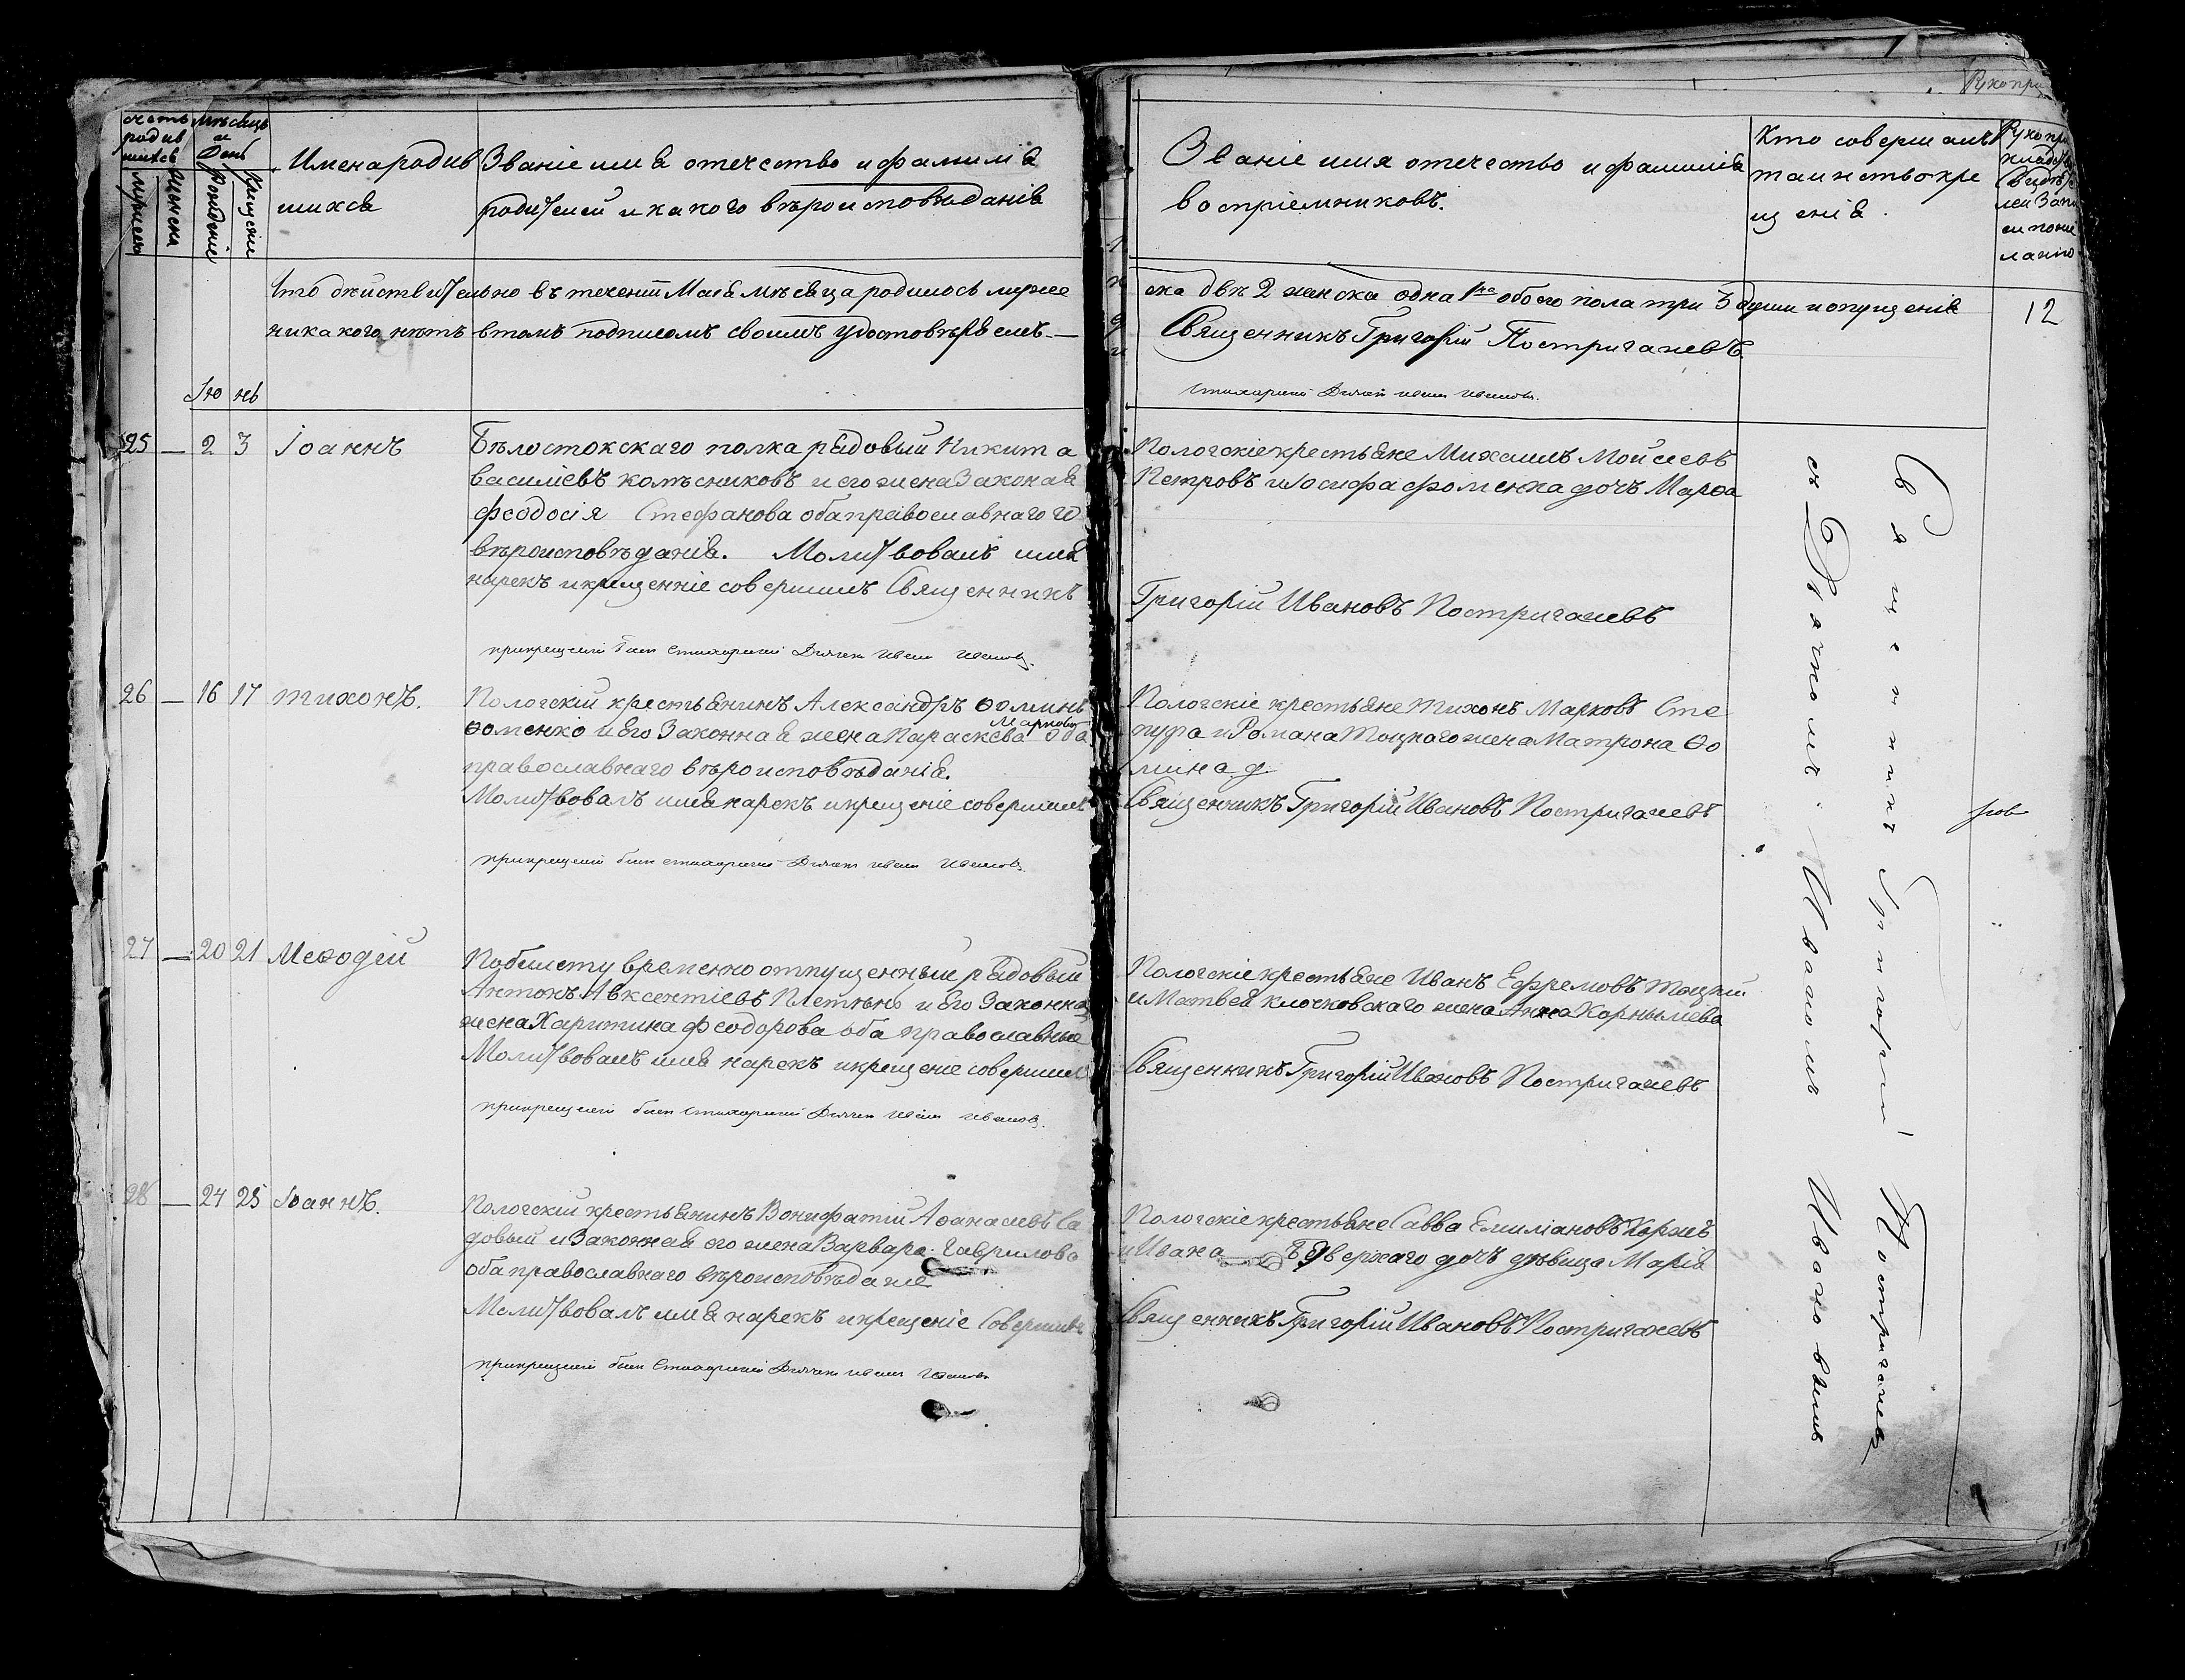 счетъ родив шихся
мужеска
женска
мѣсяцъ и День
Рожденіе
Крещеніе
Имена родив
шихся
Званіе имя отечество и фамилія
родителей и какого вѣроисповѣданія
Званіе имя отечество и фамилія
воспріемниковъ.
Кто совершалъ
таинство кре
щенія.
12
Что дѣйствительно въ теченіи Мая мѣсяца родилось муже
ска двѣ 2 женска одна 1на обоего пола три 3 души и опущенія
никакого нѣтъ втомъ подписомъ своимъ удостовѣряемъ. —
Священникъ Григорій Постригачевъ.
Стихарный Дьячекъ Иванъ Ивановъ.
Iю нь
25 — 2 3 Іоаннъ
Бѣлостокскаго полка рядовый Никита
Василіевъ Колѣсниковъ и его жена Законая
Феодосія Стефанова оба православнаго
вѣроисповѣданія. Молитвовалъ имя
нарекъ и крещенніе совершилъ Священникъ
при крещеніи былъ Стихарный Дьячекъ Иванъ Ивановъ.
Пологскіе крестьяне Михаилъ Мойсеевъ
Петровъ и Іосифа Фоменка дочь Марѳа
Григорій Ивановъ Постригачевъ
26 — 16 17 Тихонъ.
Пологскій крестьянинъ Александръ Ѳоминъ
Ѳоменко и Его Законная жена Параскева Маркова оба
православнаго вѣроисповѣданія.
Молитвовалъ имя нарекъ и крещеніе совершилъ
при крещеніи былъ стихарный Дьячекъ Иванъ Ивановъ
Пологскіе крестьяне Тихонъ Марковъ Сте
пура и Романа Тоцкого жена Матрона Ѳо
мина д.
Священникъ Григорій Ивановъ Постригачевъ
27 — 20 21 Меѳодій
По билету временно отпущенный рядовый
Антонъ Авксентіевъ Плетѣнь и Его Законна
жена Харитина Феодорова оба православные
Молитвовалъ имя нарекъ и крещеніе совершилъ
при крещеніи былъ Стихарный Дьячекъ Иванъ Ивановъ.
Пологскіе крестьяне Иванъ Ефремовъ Тоцкій
и Матвея Клочковскаго жена Анна Корнылева
Священникъ Григорій Ивановъ Постригачевъ
28 — 24 25 Іоаннъ.
Пологскій крестьянинъ Вонифатій Аѳанасіевъ Са
довый и Законная его жена Варвара Гаврилова
оба православнаго вѣроисповѣданіе
Молитвовалъ имя нарекъ и крещеніе Совершилъ
при крещеніи былъ Стихарный Дьячекъ Иванъ Ивановъ
Пологскіе крестьяне Савва Емиліановъ Коржъ
и Ивана дочь дѣвица Марія
Священникъ Григорій Ивановъ Постригачевъ
Священникъ Григорій Постригачевъ
съ Дьячкомъ Иваномъ Ивановымъ